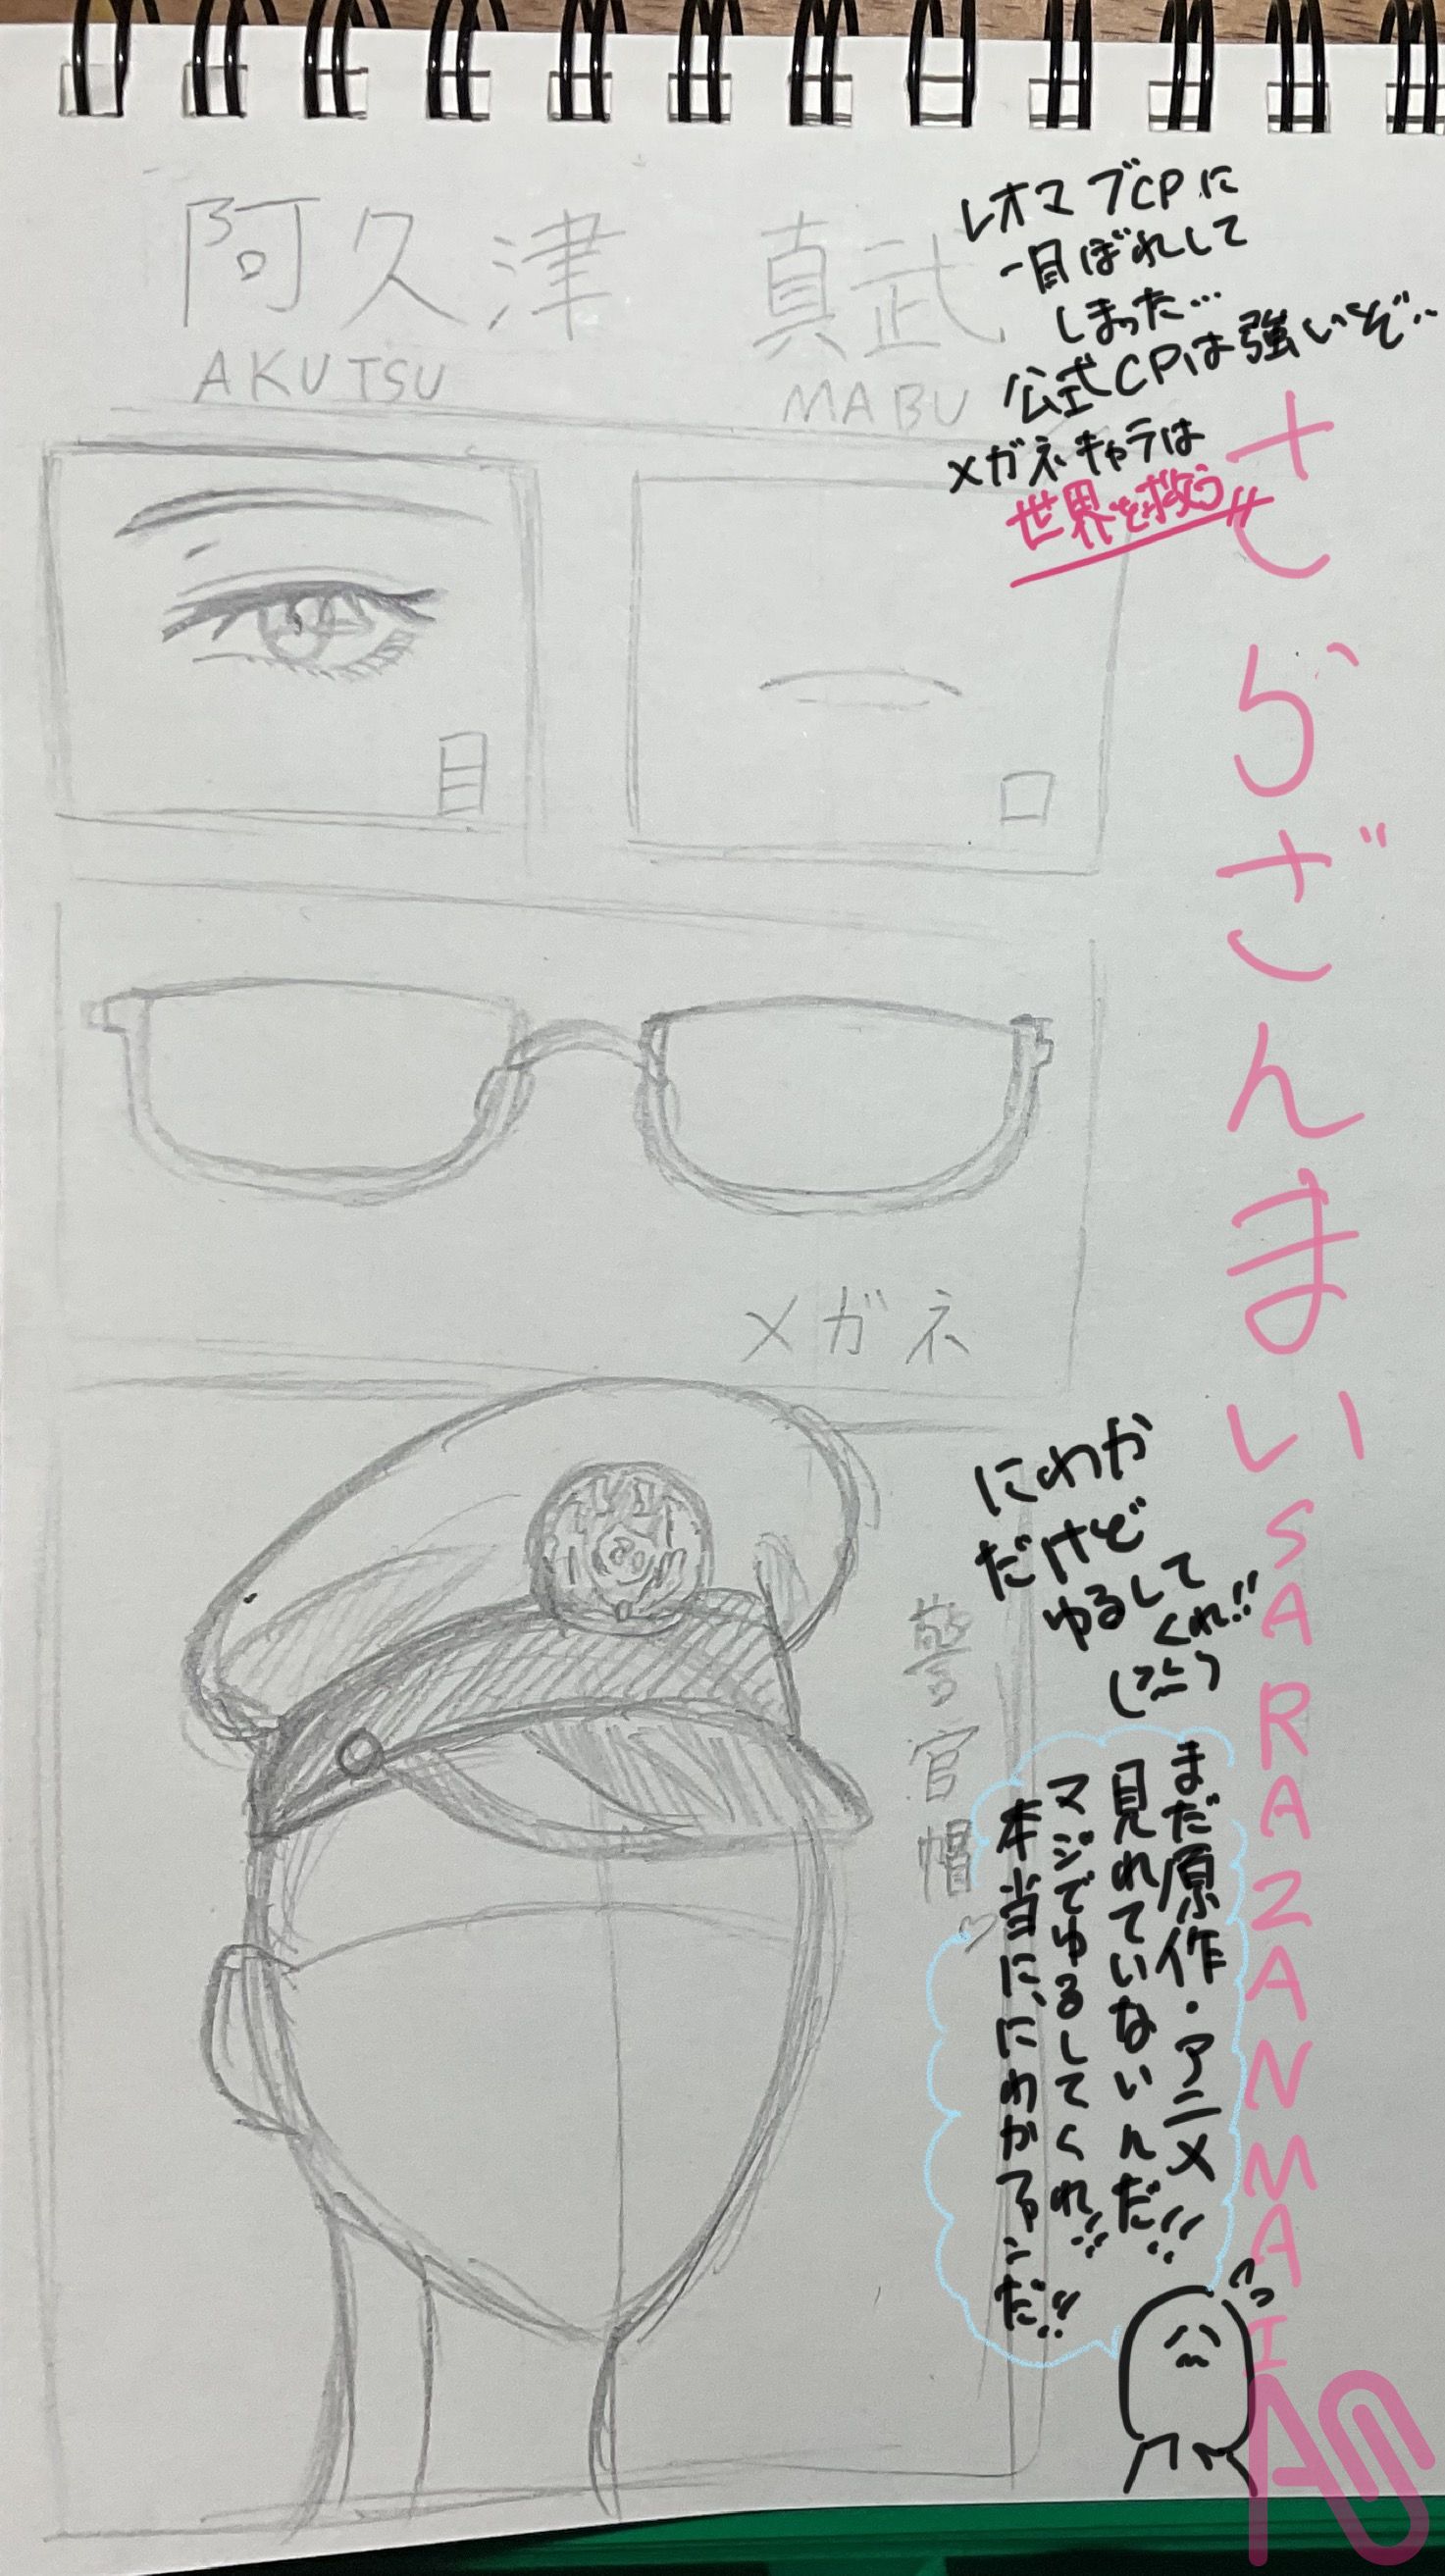 阿久津 真武
AKUTSU MABU
レオマブCPに
一目ぼれして
しまった…
公式CPは強いぞ…
メガネキャラは
世界を救う〃
目
口
メガネ
警官帽♡
にわか
だけど
ゆるして
くれ!!
まだ原作・アニメ
見れていないんだ!!!
マジでゆるしてくれ!!!
本当に、にわかファンだ!!
さらざんまい
SARAZANMAI